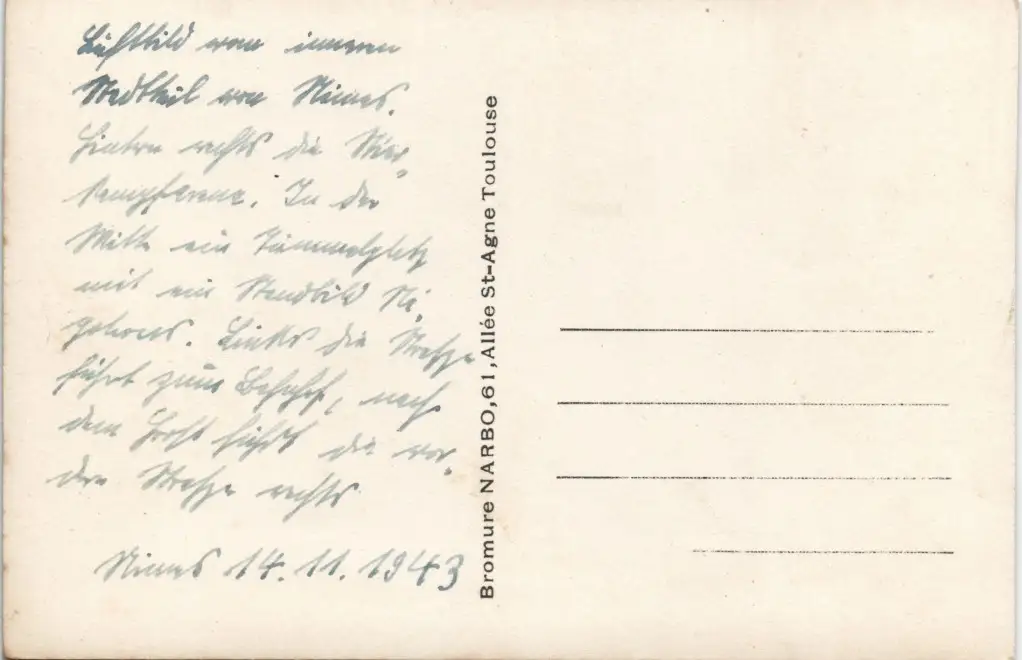 Luftbild vom inneren
Stadtteil von Nimes.
Hinten rechts die Stier-
kampfarena. In der
Mitte ein Tummelplatz
mit ein Standbild
Links die Straße
führt zum Bahnhof, nach
dem Horst führt die vor-
dere Straße rechts
Nimes 14. 11. 1943
Bromure NARBO, 61, Allée St-Agne Toulouse